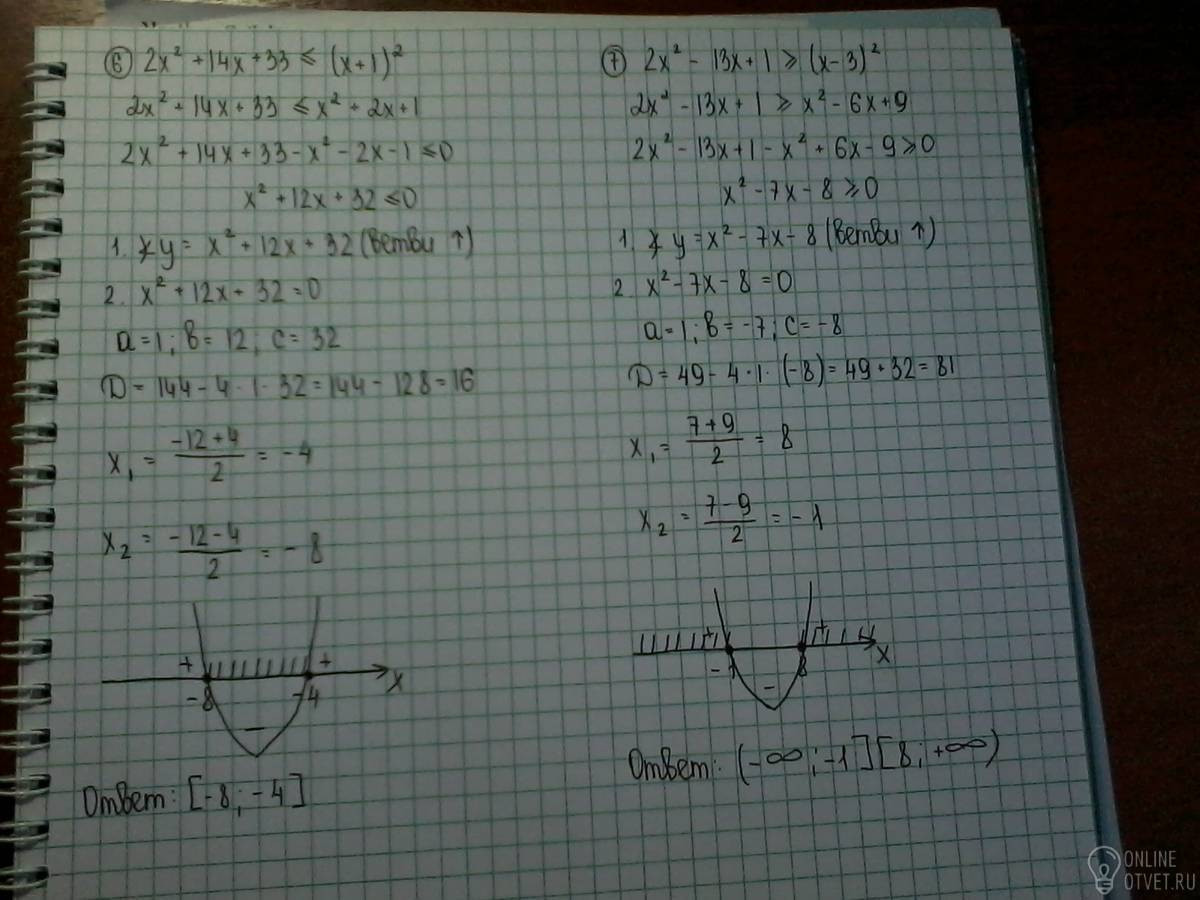 ⑥ 2x² + 14x + 33 ≤ (x+1)²
2x² + 14x + 33 ≤ x² + 2x + 1
2x² + 14x + 33 - x² - 2x - 1 ≤ 0
x² + 12x + 32 ≤ 0
1. y = x² + 12x + 32 (ветви ↑)
2. x² + 12x + 32 = 0
a = 1; b = 12; c = 32
D = 144 - 4 · 1 · 32 = 144 - 128 = 16
x₁ = (-12+4)/2 = -4
x₂ = (-12-4)/2 = -8
+ +
-8 -4 x
-
Ответ: [-8; -4]
⑦ 2x² - 13x + 1 ≥ (x-3)²
2x² - 13x + 1 ≥ x² - 6x + 9
2x² - 13x + 1 - x² + 6x - 9 ≥ 0
x² - 7x - 8 ≥ 0
1. y = x² - 7x - 8 (ветви ↑)
2. x² - 7x - 8 = 0
a = 1; b = -7; c = -8
D = 49 - 4 · 1 · (-8) = 49 + 32 = 81
x₁ = (7+9)/2 = 8
x₂ = (7-9)/2 = -1
+ +
-1 8 x
-
Ответ: (-∞; -1][8; +∞)
ONLINE
OTVET.RU